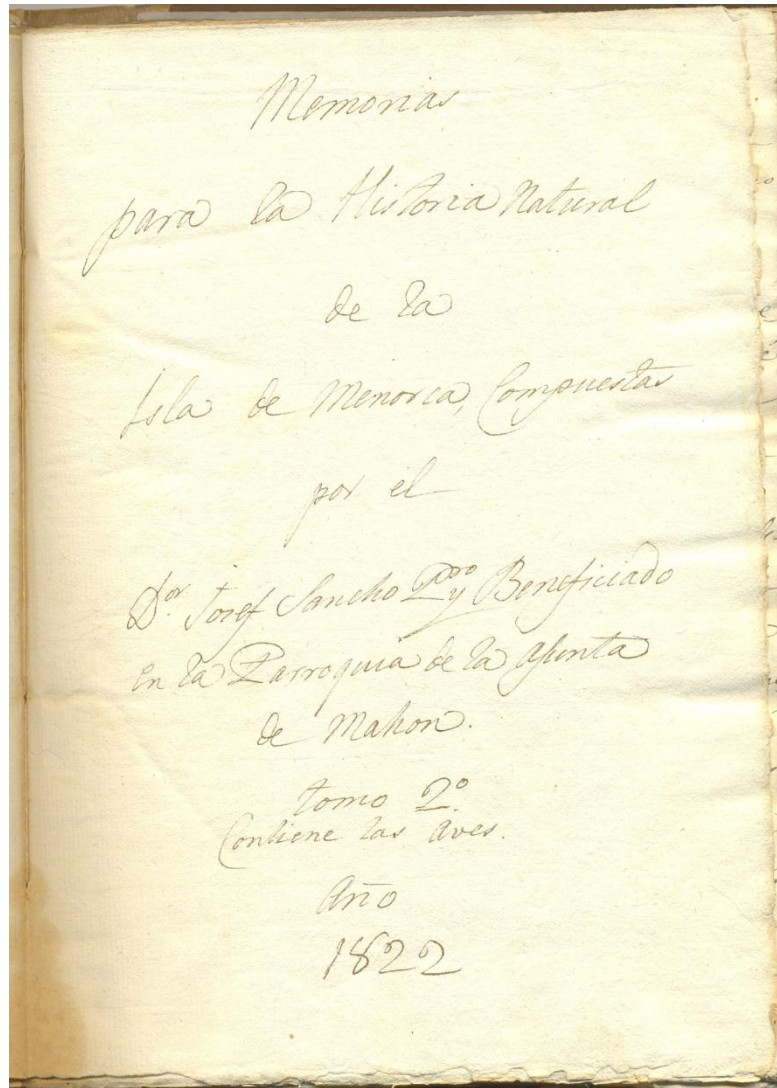 Memorias
para la Historia Natural
de la
Isla de Menorca, Compuestas
por el
D.or Josef Sancho Pbro y Beneficiado
en la Parroquia de la Asunta
de Mahon.
tomo 2º.
Contiene las Aves.
Año
1822